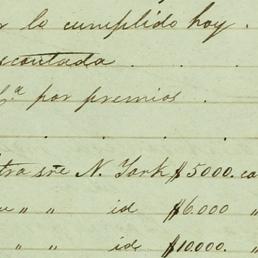 r lo cumplido hoy.
scontada . .
por premios .
. . . .
tra sre N. York $5000. ca
" " id $6.000 "
" " id $10.000. "